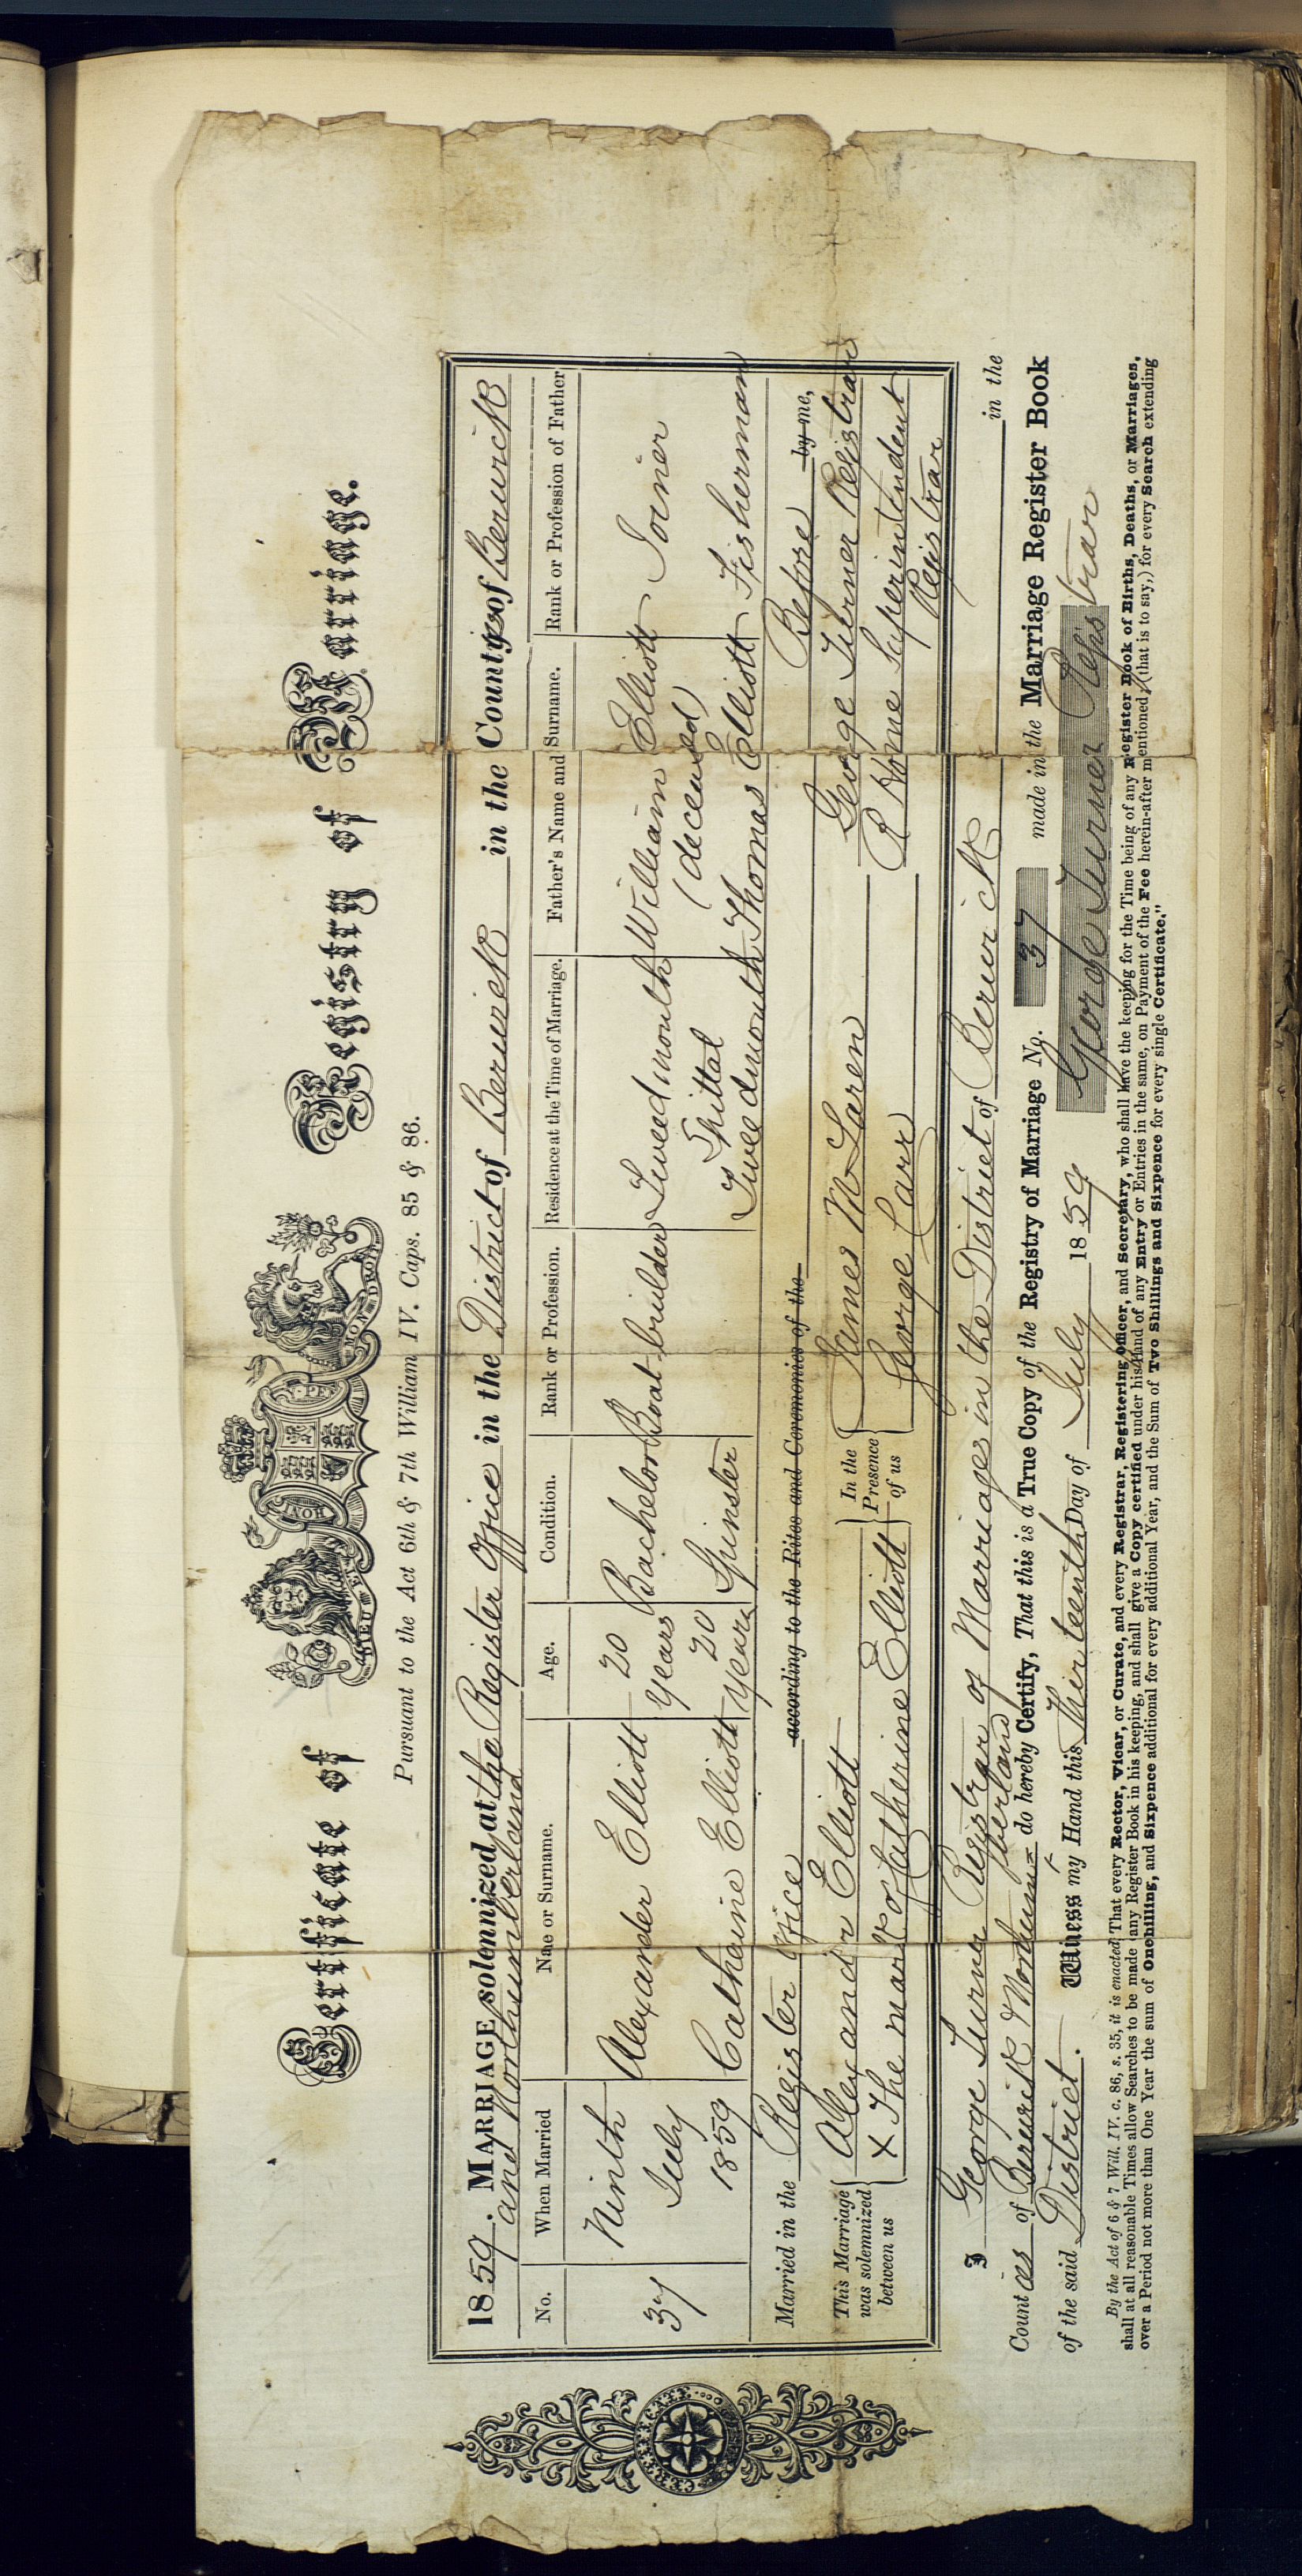 Certificate of Registry of Marriage.
HON Y PEN
DIEU ET MON DROIT
Pursuant to the Act 6th & 7th William IV. Caps. 85 & 86.
1859. MARRIAGE solemnized at the Register Office in the District of Berwick in the County of Berwick
and Northumberland
No. When Married Name or Surname. Age. Condition. Rank or Profession. Residence at the Time of Marriage. Father's Name and Surname. Rank or Profession of Father
37 Ninth July 1859 Alexander Elliott 20 years Bachelor Boat-builder Tweedmouth William Elliott (deceased) Joiner
Catharine Elliott 20 years Spinster Spittal Tweedmouth Thomas Elliott Fisherman
Married in the Register Office according to the Rites and Ceremonies of the Before by me,
This Marriage was solemnized between us
Alexander Elliott
X The mark of Catherine Elliott
In the Presence of us
James McLaren
George Carr
George Turner Registrar
R Home Superintendent
Registrar
I George Turner Registrar of Marriages in the District of Berwick in the
Counties of Berwick & Northumberland do hereby Certify, That this is a True Copy of the Registry of Marriage No. 37 made in the Marriage Register Book
of the said District. Witness my Hand this Thirteenth Day of July 1859 George Turner Registrar
By the Act of 6 & 7 Will. IV. c. 86, s. 35, it is enacted That every Rector, Vicar, or Curate, and every Registrar, Registering Officer, and Secretary, who shall have the keeping for the Time being of any Register Book of Births, Deaths, or Marriages,
shall at all reasonable Times allow Searches to be made (any Register Book in his keeping, and shall give a Copy certified under his Hand of any Entry or Entries in the same, on Payment of the Fee herein-after mentioned, (that is to say,) for every Search extending
over a Period not more than One Year the sum of One hilling, and Sixpence additional for every additional Year, and the Sum of Two Shillings and Sixpence for every single Certificate."
CERTIFICATE